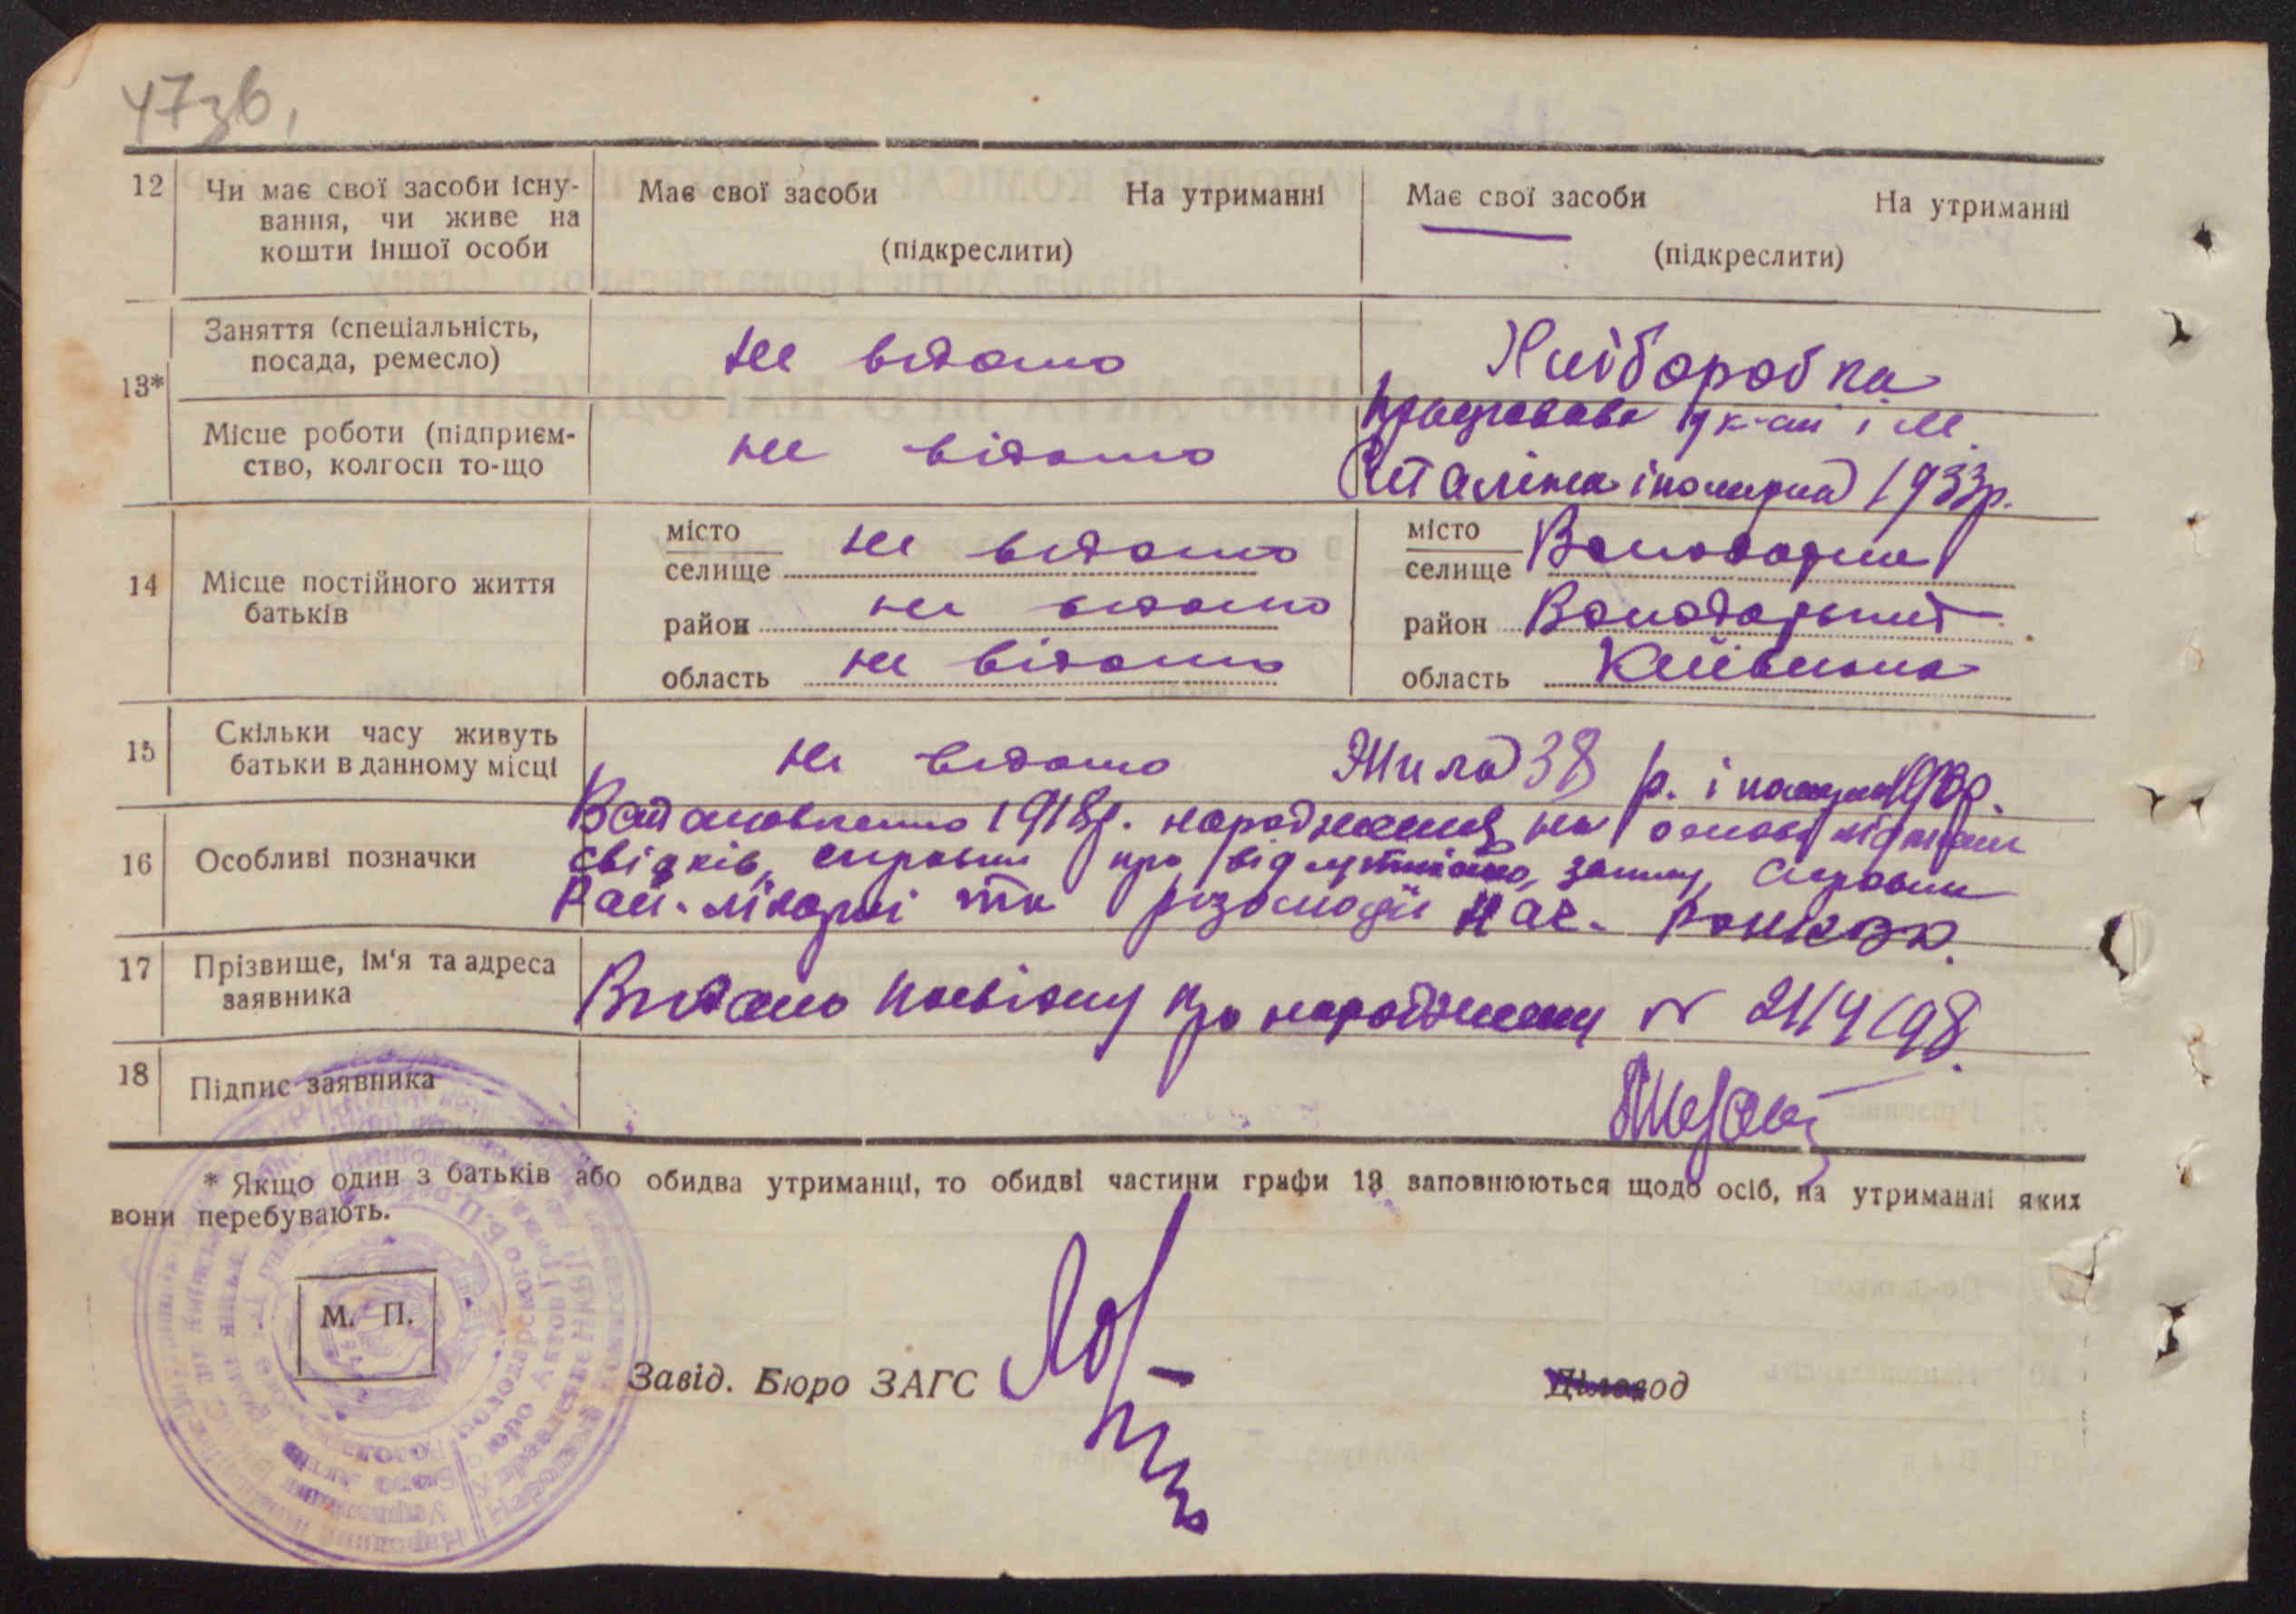 47зв,
12 Чи має свої засоби існу-
вання, чи живе на
кошти іншої особи
Має свої засоби На утриманні
(підкреслити)
Має свої засоби На утриманні
(підкреслити)
13*
Заняття (спеціальність,
посада, ремесло)
не відомо
Хліборобка
Місце роботи (підприєм-
ство, колгосп то-що
не відомо
працювала у к-пі ім.
Сталіна і померла 1933р.
14 Місце постійного життя
батьків
місто
селище не відомо
район не відомо
область не відомо
місто
селище Володарка
район Володарський
область Київська
15 Скільки часу живуть
батьки в данному місці
не відомо
Жила 38 р. і
16 Особливі позначки
Встановлено 1918р. народження на основі
свідків, справки про відсутність запису, справки
Рай. лікарні та
17 Прізвище, ім'я та адреса
заявника
Видано посвідку про народження №
18 Підпис заявника
* Якщо один з батьків або обидва утриманці, то обидві частини графи 13 заповнюються щодо осіб, на утриманні яких
вони перебувають.
М. П.
Завід. Бюро ЗАГС
Діловод